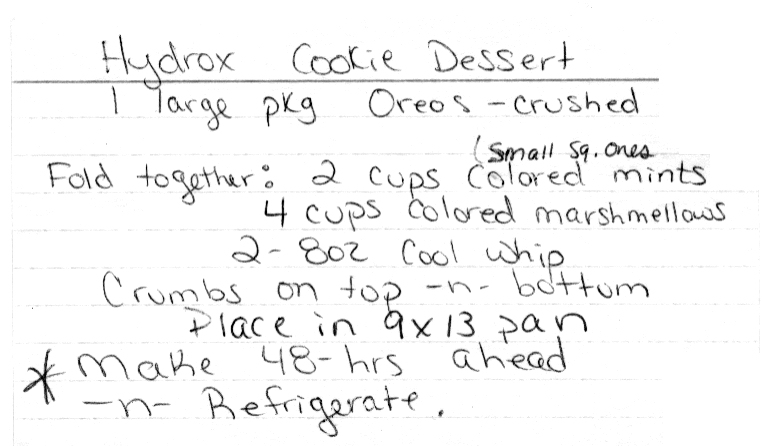 Hydrox Cookie Dessert
1 large pkg Oreos - crushed
(small sq. ones
Fold together: 2 cups colored mints
4 cups colored marshmellows
2- 8oz Cool whip
Crumbs on top -n- bottom
Place in 9x13 pan
* Make 48-hrs ahead
-n- Refrigerate.